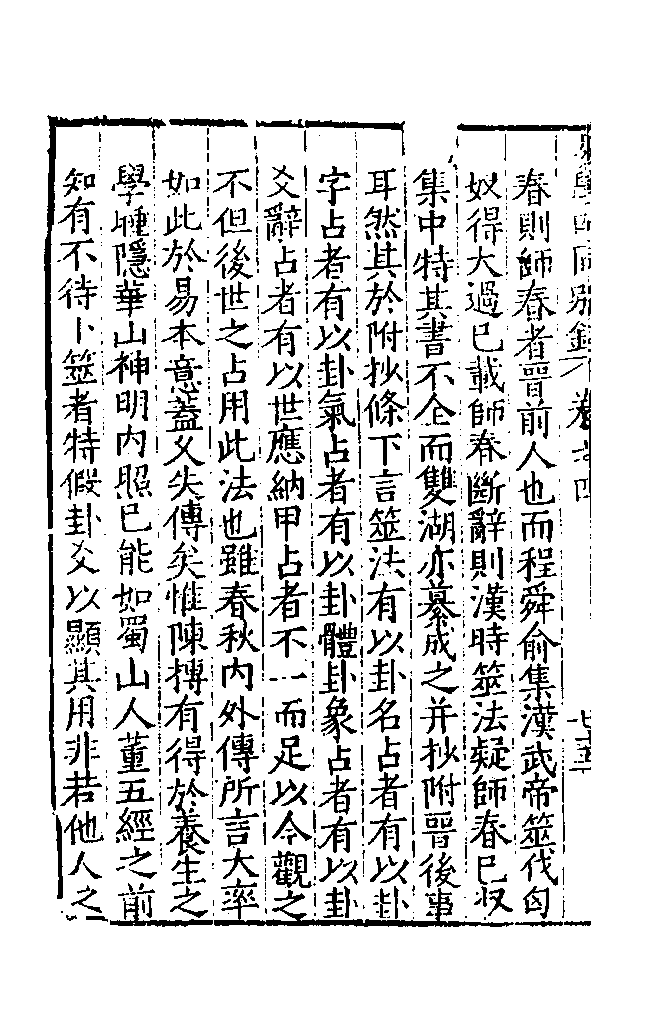 春則師春者晉前人也而程舜俞集漢武帝筮伐匈
奴得大過已載師春斷辭則漢時筮法疑師春已収
集中特其書不仝而雙湖亦纂成之并抄附晉後事
耳然其於附抄條下言筮法有以卦名占者有以卦
字占者有以卦氣占者有以卦體卦象占者有以卦
爻辭占者有以世應納甲占者不一而足以今觀之
不但後世之占用此法也雖春秋內外傳所言大率
如此於易本意蓋久失傳矣惟陳摶有得於養生之
學睡隱華山神明內照已能如蜀山人董五經之前
知有不待卜筮者特假卦爻以顯其用非若他人之